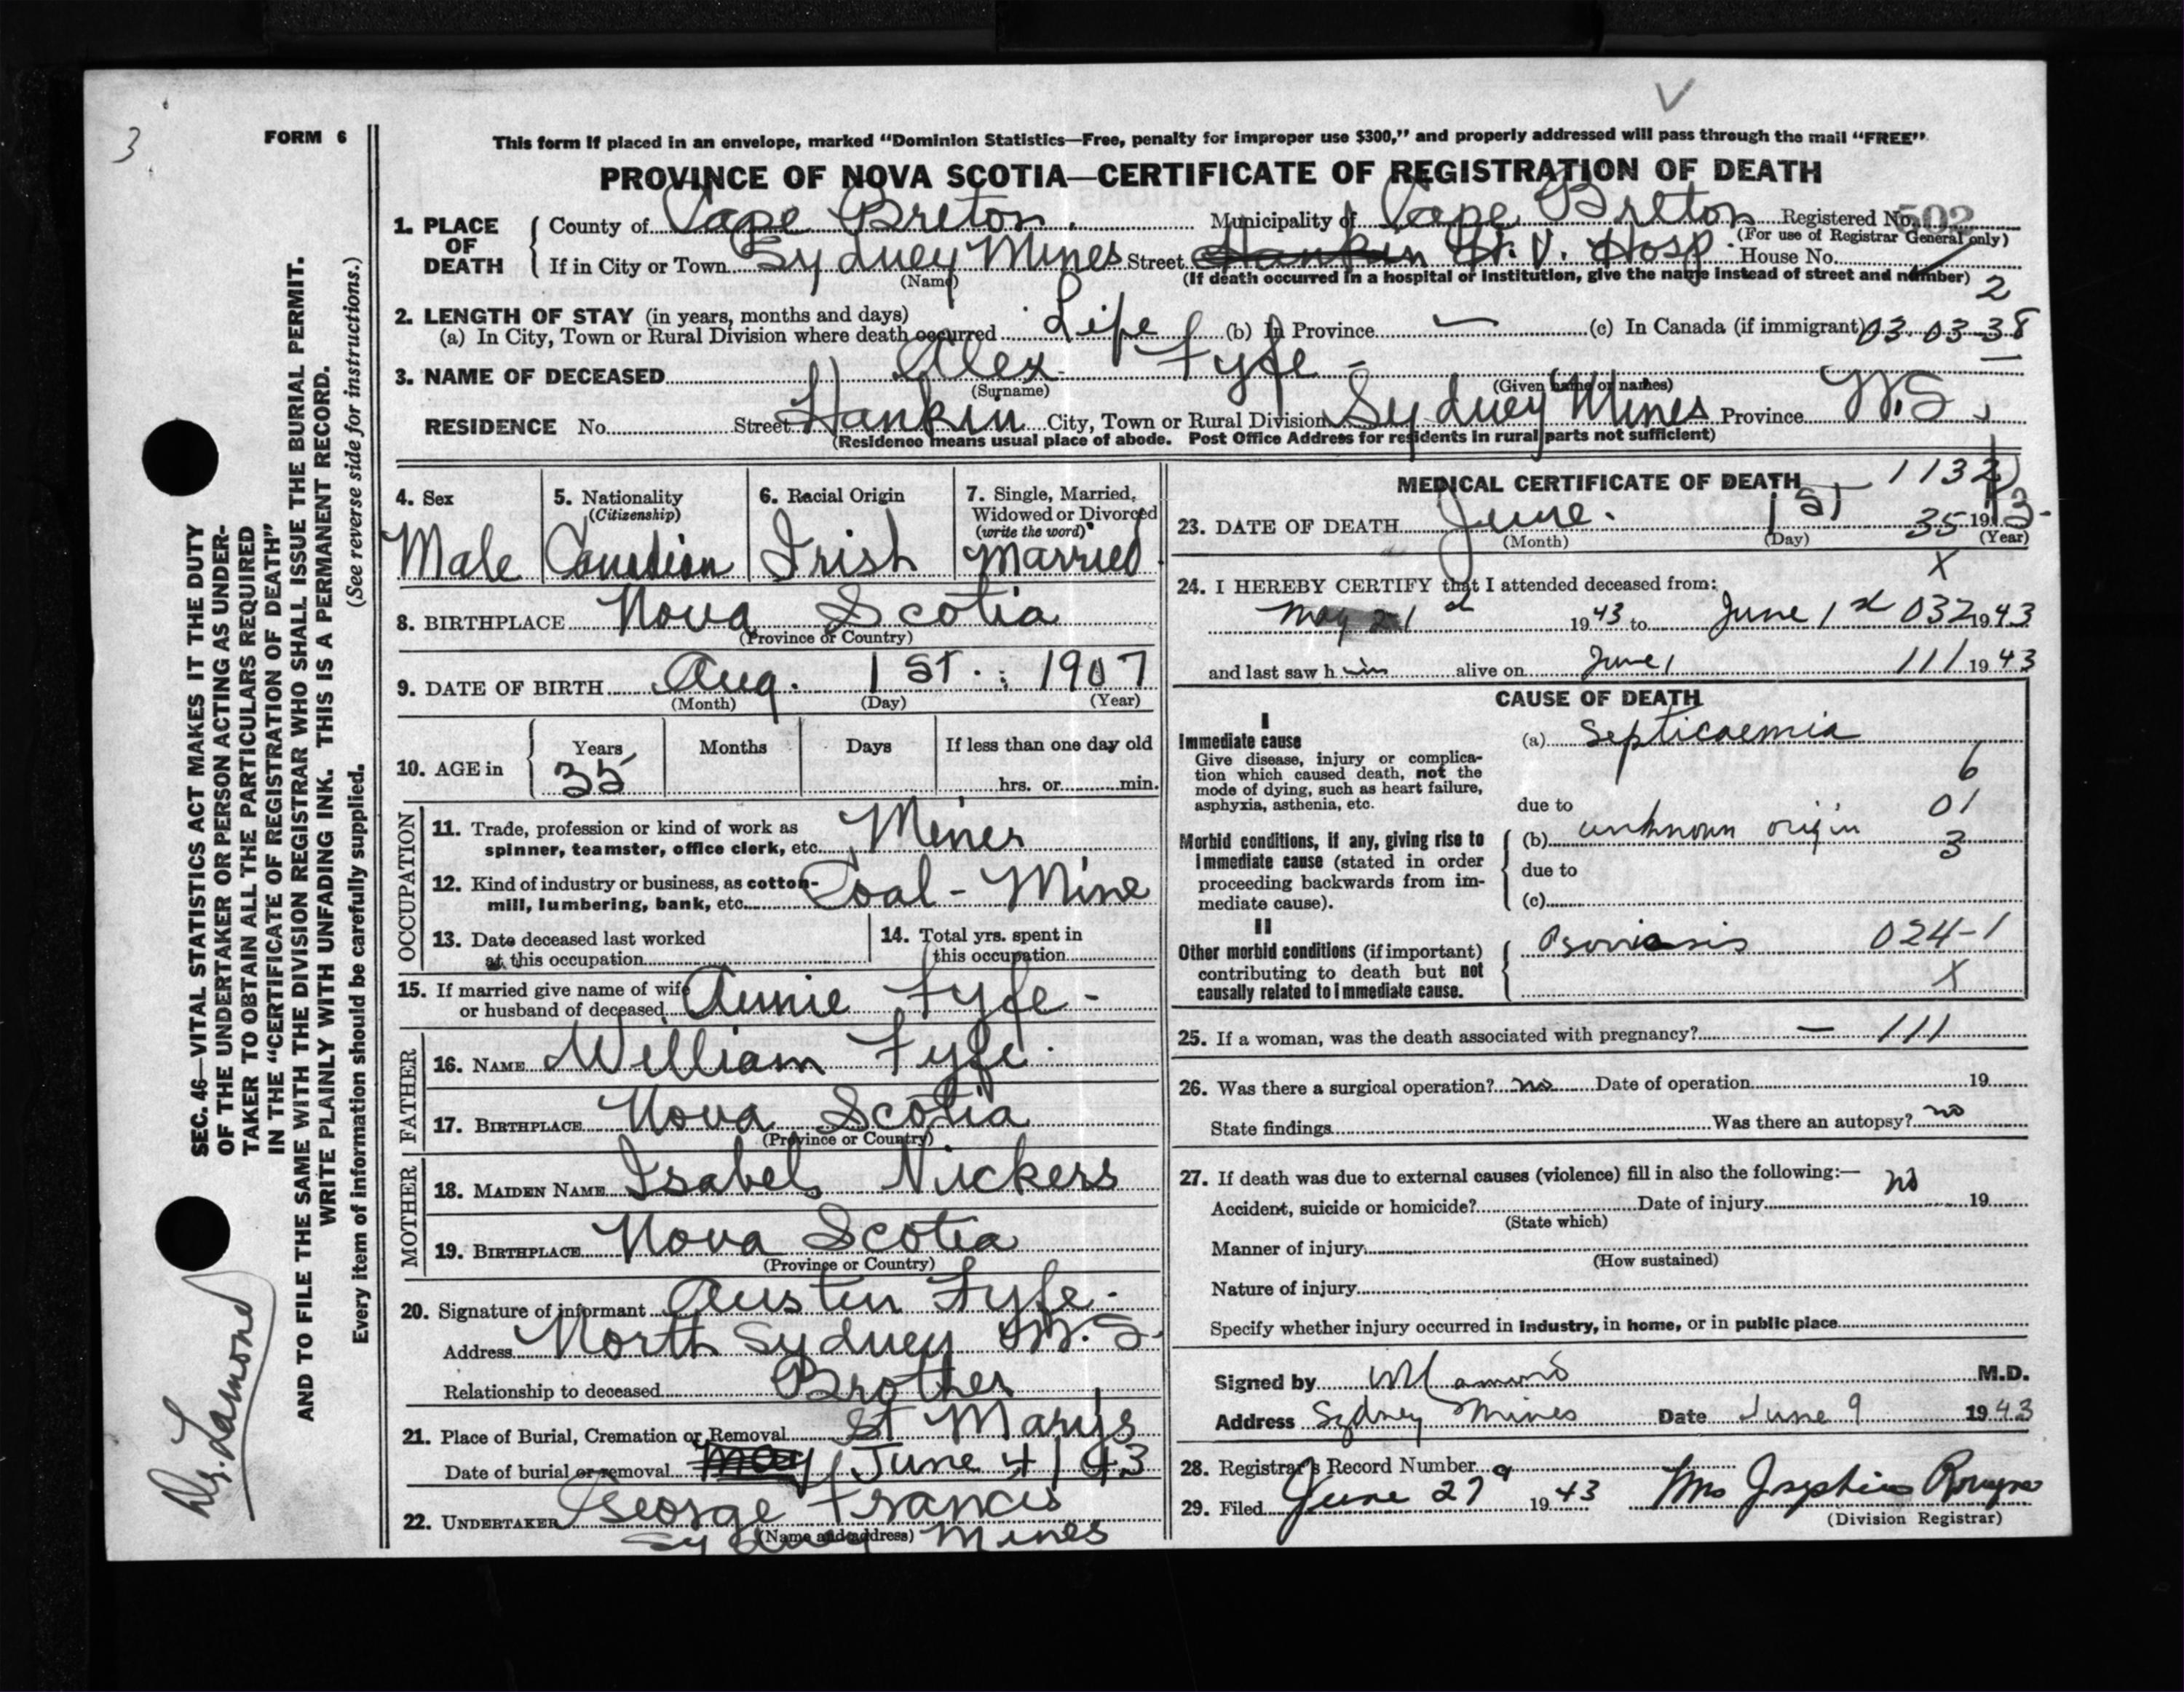 3
FORM 6
This form if placed in an envelope, marked "Dominion Statistics—Free, penalty for improper use $300," and properly addressed will pass through the mail "FREE".
PROVINCE OF NOVA SCOTIA—CERTIFICATE OF REGISTRATION OF DEATH
1. PLACE OF DEATH
County of Cape Breton. Municipality of Cape Breton Registered No. 502
(For use of Registrar General only)
If in City or Town Sydney Mines Street Hankin H. V. Hosp. House No.
(Name) (If death occurred in a hospital or institution, give the name instead of street and number)
2
2. LENGTH OF STAY (in years, months and days)
(a) In City, Town or Rural Division where death occurred Life (b) In Province — (c) In Canada (if immigrant) 03 03 38
3. NAME OF DECEASED Alex Fyfe -
(Surname) (Given name or names)
RESIDENCE No. Street Hankin City, Town or Rural Division Sydney Mines Province N.S.
(Residence means usual place of abode. Post Office Address for residents in rural parts not sufficient)
4. Sex
Male
5. Nationality
(Citizenship)
Canadian
6. Racial Origin
Irish
7. Single, Married, Widowed or Divorced
(write the word)
Married
8. BIRTHPLACE Nova Scotia
(Province or Country)
9. DATE OF BIRTH Aug. 1 st. 1907
(Month) (Day) (Year)
10. AGE in Years Months Days If less than one day old
35 hrs. or min.
OCCUPATION
11. Trade, profession or kind of work as
spinner, teamster, office clerk, etc. Miner
12. Kind of industry or business, as cotton-
mill, lumbering, bank, etc. Coal - Mine
13. Date deceased last worked
at this occupation
14. Total yrs. spent in
this occupation
15. If married give name of wife
or husband of deceased Annie Fyfe -
FATHER
16. NAME William Fyfe.
17. BIRTHPLACE Nova Scotia
(Province or Country)
MOTHER
18. MAIDEN NAME Isabel Vickers
19. BIRTHPLACE Nova Scotia
(Province or Country)
20. Signature of informant Austin Fyfe.
Address North Sydney N.S.
Relationship to deceased Brother
21. Place of Burial, Cremation or Removal St Marys
Date of burial or removal May June 4 / 43
22. UNDERTAKER George Francis
(Name and address)
Sydney Mines
MEDICAL CERTIFICATE OF DEATH 1132
23. DATE OF DEATH June. 1 st 35 1943-
(Month) (Day) (Year)
X
24. I HEREBY CERTIFY that I attended deceased from:
May 21 st 1943 to June 1 st 032 1943
and last saw him alive on June 1 111 1943
CAUSE OF DEATH
I
Immediate cause
Give disease, injury or complica-
tion which caused death, not the
mode of dying, such as heart failure,
asphyxia, asthenia, etc.
(a) Septicaemia
6
due to 01
Morbid conditions, if any, giving rise to
immediate cause (stated in order
proceeding backwards from im-
mediate cause).
(b) unknown origin
3
due to
(c)
II
Other morbid conditions (if important)
contributing to death but not
causally related to immediate cause.
Psoriasis 024-1
X
25. If a woman, was the death associated with pregnancy? — 111
26. Was there a surgical operation? no Date of operation 19
State findings Was there an autopsy? no
27. If death was due to external causes (violence) fill in also the following:— no
Accident, suicide or homicide? Date of injury 19
(State which)
Manner of injury
(How sustained)
Nature of injury
Specify whether injury occurred in industry, in home, or in public place
Signed by M.D.
Address Sydney Mines Date June 9 1943
28. Registrar's Record Number 9
29. Filed June 27 1943 Mrs Josephine
(Division Registrar)
SEC. 46—VITAL STATISTICS ACT MAKES IT THE DUTY
OF THE UNDERTAKER OR PERSON ACTING AS UNDER-
TAKER TO OBTAIN ALL THE PARTICULARS REQUIRED
IN THE "CERTIFICATE OF REGISTRATION OF DEATH"
AND TO FILE THE SAME WITH THE DIVISION REGISTRAR WHO SHALL ISSUE THE BURIAL PERMIT.
WRITE PLAINLY WITH UNFADING INK. THIS IS A PERMANENT RECORD.
Every item of information should be carefully supplied. (See reverse side for instructions.)
Dr. Lamond